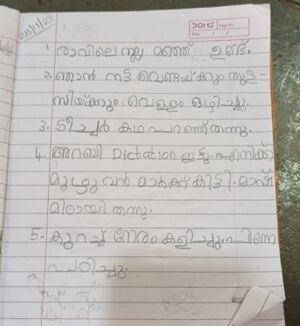 22/11/23
JOMS Page No.
Date / /
1. രാവിലെ നല്ല മഞ്ഞ് ഉണ്ട്.
2. ഞാൻ നട്ട വെണ്ടയ്ക്കും തുള-
സിയ്ക്കും വെള്ളം ഒഴിച്ചു.
3. ടീച്ചർ കഥ പറഞ്ഞ് തന്നു.
4. അറബി Dictation ഇട്ടു. എനിക്ക്
മുഴുവൻ മാർക്ക് കിട്ടി. മാഷ്
മിഠായി തന്നു.
5. കുറച്ച് നേരം കളിച്ചു. പിന്നെ
പഠിച്ചു.